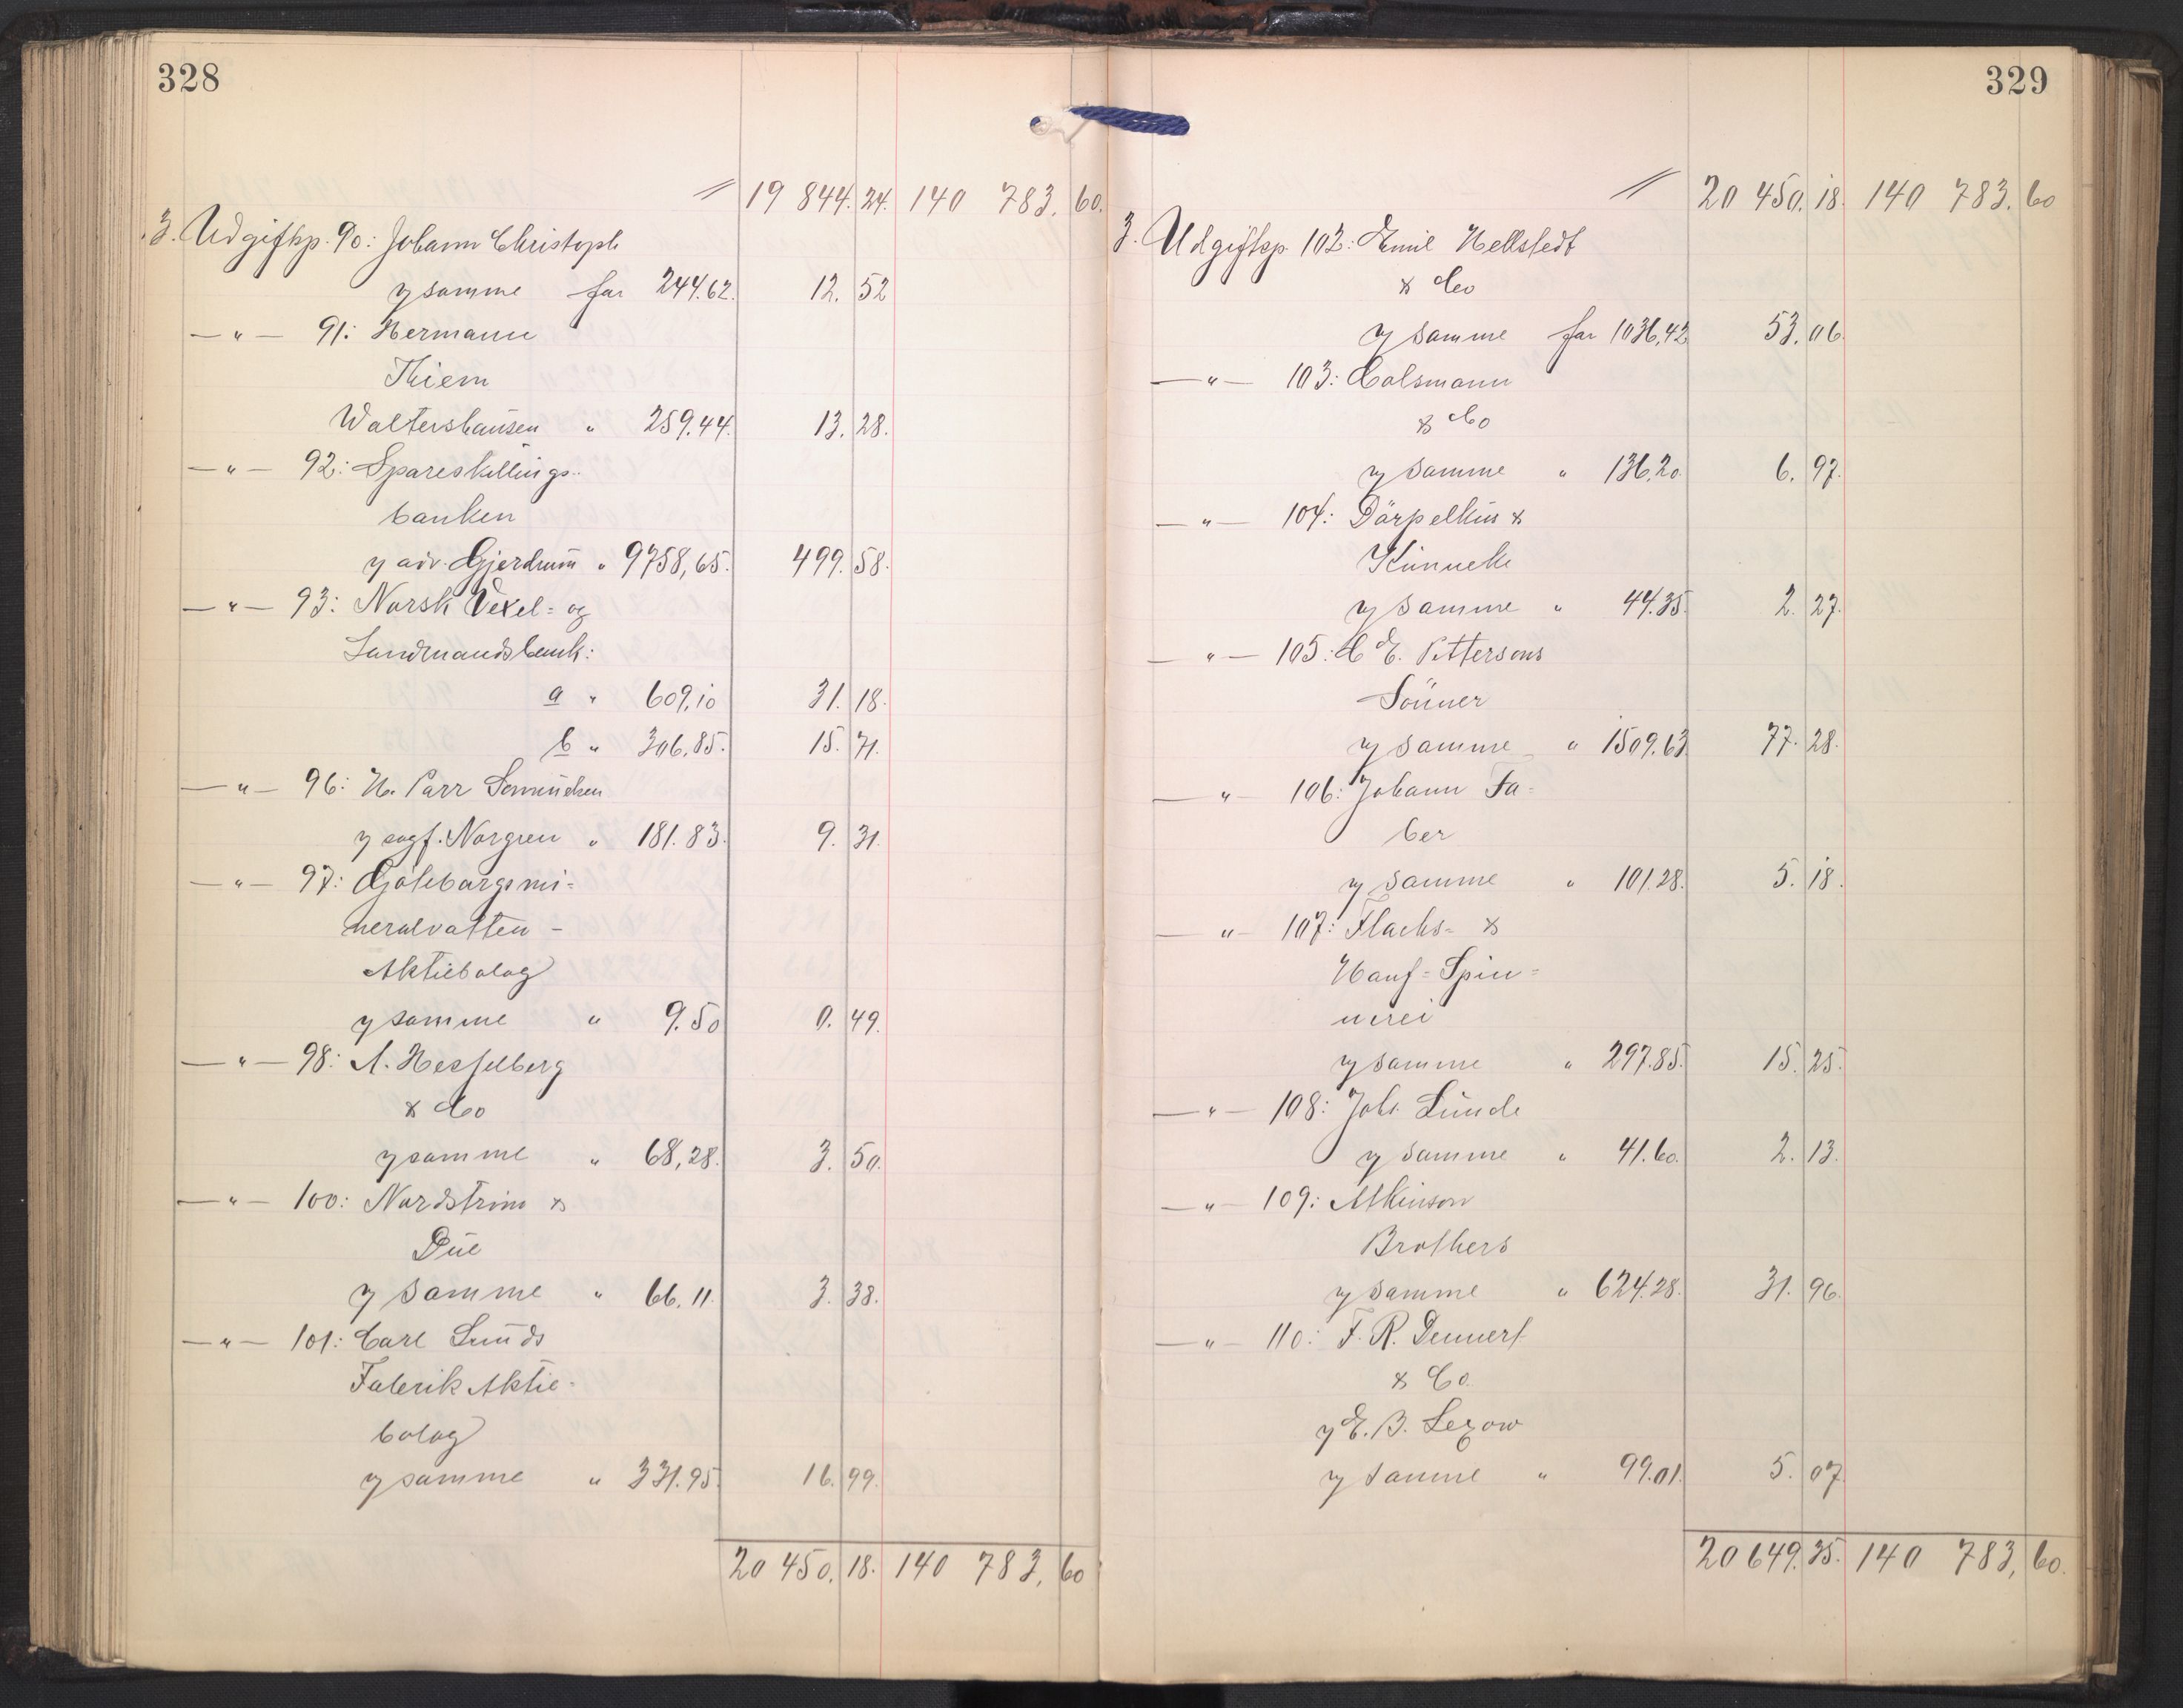 328
" 19 844. 24. 140 783. 60.
3. Udgiftsp. 90: Johann Christoph
v/ samme for 244.62. 12. 52
— " — 91: Hermann
Thiem
Waltershausen " 259.44. 13. 28.
— " — 92: Spareskillings-
banken
v/ adv. Gjerdrum " 9758,65. 499. 58.
— " — 93: Norsk Vexel= og
Landmandsbank:
a " 609,10 31. 18.
b " 306,85. 15. 71.
— " — 96: H. Parr
v/ sagf. Norgren " 181.83. 9. 31.
— " — 97: Gøteborgs mi=
neralvatten -
Aktiebolag
v/ samme " 9.50 0. 49.
— " — 98: A. Hesselberg
& Co
v/ samme " 68,28. 3. 50.
— " — 100: Nordstrøm &
Due
v/ samme " 66.11. 3. 38.
— " — 101: Carl Lunds
Fabrik Aktie-
bolag
v/ samme " 331.95. 16. 99.
20 450. 18. 140 783, 60
329
" 20 450. 18. 140 783. 60
3. Udgiftsp. 102: Emil Hellstedt
& Co
v/ samme for 1036,42 53. 06.
— " — 103: Colsmann
& Co
v/ samme " 136,20. 6. 97.
— " — 104: Dörpelkus &
Künneke
v/ samme " 44.35. 2. 27.
— " — 105: C E. Pettersons
Sönner
v/ samme " 1509.63 77. 28.
— " — 106: Johann Fa=
ber
v/ samme " 101.28. 5. 18.
— " — 107: Flachs= &
Hanf= Spin=
nerei
v/ samme " 297.85. 15. 25.
— " — 108: Johs. Lunde
v/ samme " 41.60. 2. 13.
— " — 109: Atkinson
Brothers
v/ samme " 624.28. 31. 96.
— " — 110: F. R. Dennert
& Co.
v/ E. B. Lexow
v/ samme " 99.01. 5. 07.
20 649. 35. 140 783, 60.